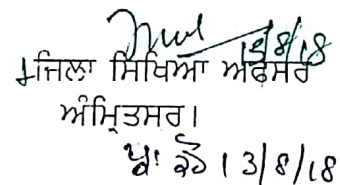 13/8/18
ਜਿਲਾ ਸਿਖਿਆ ਅਫਸਰ
ਅੰਮ੍ਰਿਤਸਰ।
13/8/18